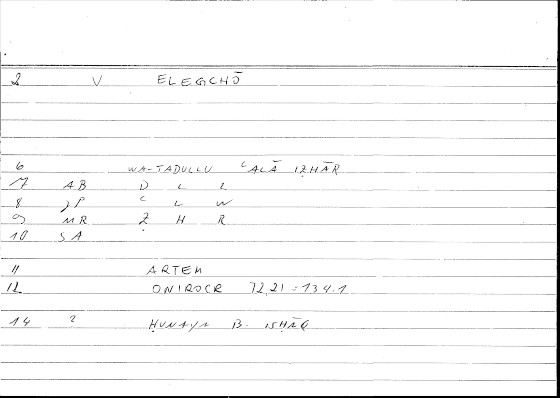 2 V ELEGCHŌ
6 WA-TADULLU ʿALĀ IẒHĀR
7 AB D L L
8 JP ʿ L W
9 MR Ẓ H R
10 SA
11 ARTEM
12 ONIROCR 72,21 = 134.1
14 ? ḤUNAYN B. ISḤĀQ